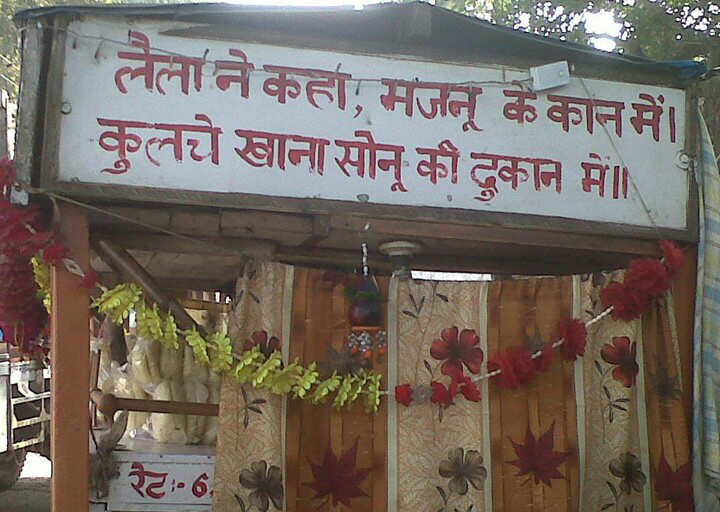 लैला ने कहा, मजनू के कान में।
कुलचे खाना सोनू की दुकान में॥
रेट:- 6